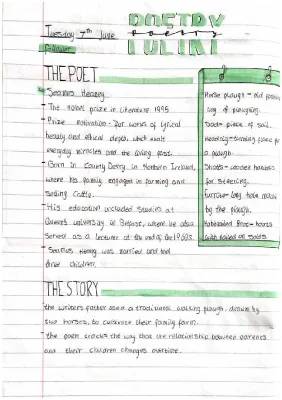 Tuesday 7th June
POETRY
poetry
POETRY
Follower
THE POET
Seamus Heaney
- The nobel prize in Literature 1995
- Prize motivation - "for works of lyrical
beauty and ethical depth, which exalt
everyday miracles and the living past.
- Born in County Derry in Northern Ireland,
where his family engaged in farming and
selling Cattle.
- His education included studies at
Queen's university in Belfast, where he also
served as a lecturer at the end of the 1960s.
- Seamus Heaney was married and had
three children.
Horse plough - old fashioned
way of ploughing.
Sod = piece of soil.
Headrig - turning place for
a plough.
Shafts - wooden handles
for steering.
Furrow - long hole made
by the plough.
Hobnailed - boots
with nailed on soles.
THE STORY
- the writers father used a traditional walking plough, drawn by
two horses, to cultivate their family farm.
- the poem the way that the relationship between parents
and their children changes overtime.